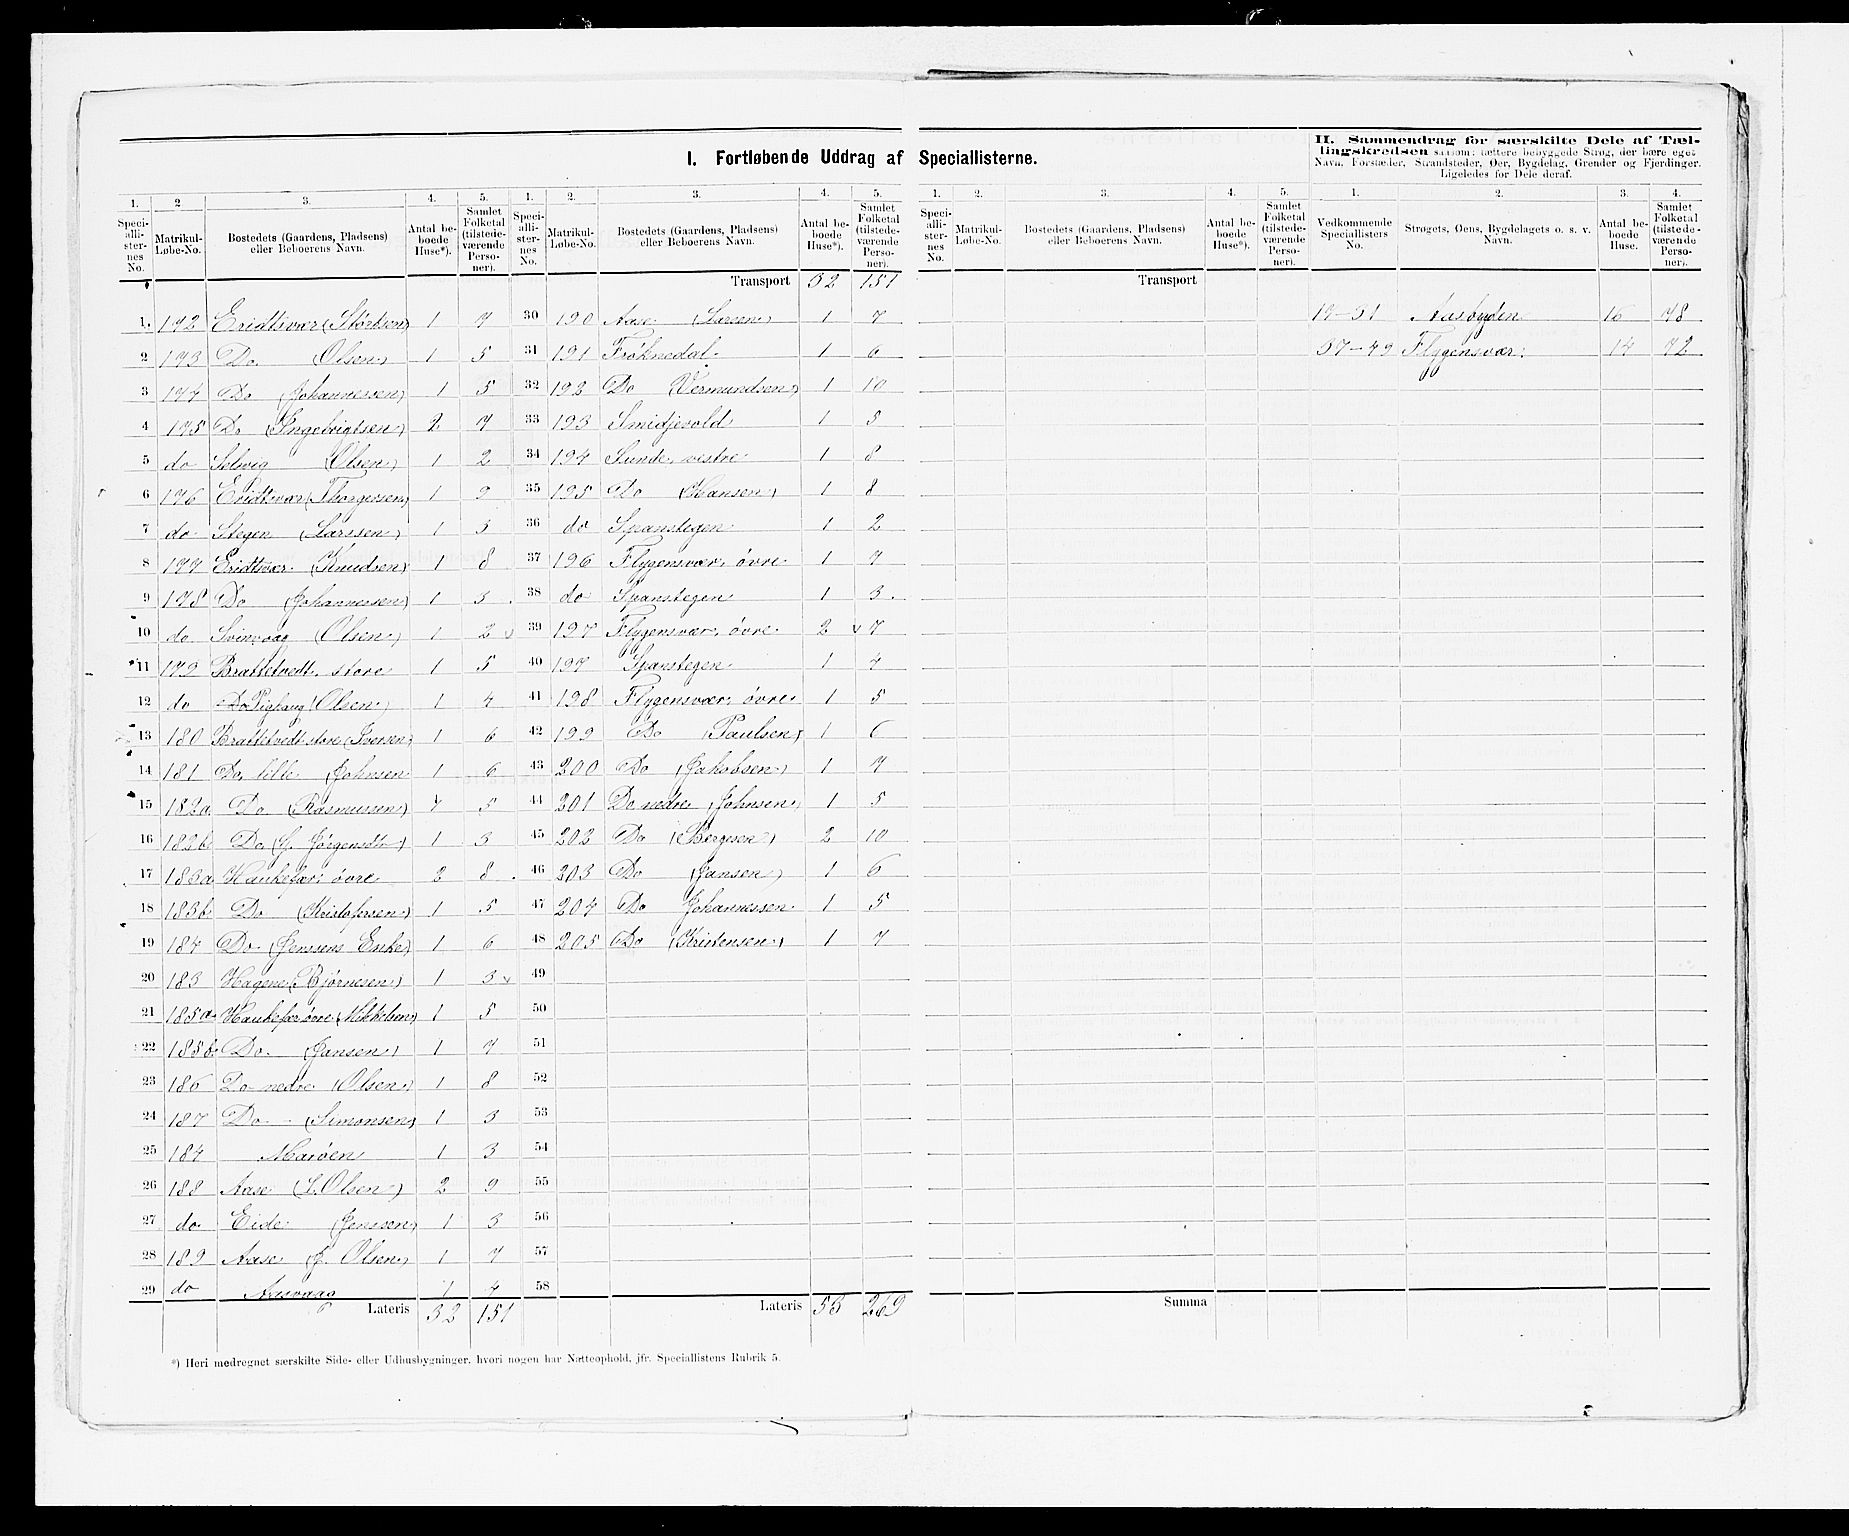 I. Fortløbende Uddrag af Speciallisterne.
II. Sammendrag for særskilte Dele af Tællingskredsen saasom: tættere bebyggede Strøg, der bære eget Navn, Forstæder, Strandsteder, Øer, Bygdelag, Grender og Fjerdinger. Ligeledes for Dele deraf.
1. 2 3. 4. 5.
Speciallisternes No. Matrikul-Løbe-No. Bostedets (Gaardens, Pladsens) eller Beboerens Navn. Antal beboede Huse*). Samlet Folketal (tilstedeværende Personer).
1. 172 Eridtsvær (Stortsen) 1 7
2 173 Do. (Olsen) 1 5
3 174 Do (Johannessen) 1 5
4 175 Do (Ingebrigtsen) 2 7
5 do Selvig (Olsen) 1 2
6 176 Eridtsvær (Thorgersen) 1 9
7 do. Stegen (Larssen) 1 3
8 177 Eridtsvær (Knudsen) 1 8
9 178 Do (Johannessen) 1 3
10 do Svinvaag (Olsen) 1 2
11 179 Brattetvedt, store 1 5
12 do (Olsen) 1 4
13 180 Brattetvedt store (Iversen) 1 6
14 181 Do, lille (Johnsen 1 6
15 182a Do. (Rasmussen) 5
16 182b Do. (J. Jørgensen) 1 3
17 183a Haukefær, øvre 2 8
18 183b Do (Kristofersen) 1 5
19 184 Do (Jenssens Enke) 1 6
20 183 Hagene (Bjørnesen) 1 3
21 185a Haukefær øvre (Mikkelsen) 1 5
22 185b Do. (Jansen) 1 7
23 186 Do nedre (Olsen) 1 8
24 187 Do - (Simonsen) 1 3
25 184 Marøen 1 3
26 188 Aase (L. Olsen) 2 9
27 do. Eide (Jenssen) 1 3
28 189 Aase (J. Olsen) 1 7
29 do Aasvaag 1 4
Lateris 32 151
1. 2. 3. 4. 5.
Speciallisternes No. Matrikul-Løbe-No. Bostedets (Gaardens, Pladsens) eller Beboerens Navn. Antal beboede Huse*). Samlet Folketal (tilstedeværende Personer).
Transport 32 151
30 190 Aase (Larsen) 1 7
31 191 Frøknedal 1 6
32 192 Do (Vermundsen) 1 10
33 193 Smidjevold 1 5
34 194 Sunde, vestre 1 8
35 195 Do (Hansen) 1 8
36 do Spanstegen 1 2
37 196 Flygensvær, øvre 1 7
38 do Spanstegen 1 3
39 197 Flygensvær, øvre 2 7
40 197 Spanstegen 1 4
41 198 Flygensvær, øvre 1 5
42 199 Do Paulsen) 1 6
43 200 Do (Jakobsen) 1 7
44 201 Do nedre (Johnsen) 1 5
45 202 Do (Bergesen) 2 10
46 203 Do (Jansen) 1 6
47 204 Do Johannessen 1 5
48 205 Do (Kristensen) 1 7
49
50
51
52
53
54
55
56
57
58
Lateris 53 269
1. 2. 3. 4. 5.
Speciallisternes No. Matrikul-Løbe-No. Bostedets (Gaardens, Pladsens) eller Beboerens Navn. Antal beboede Huse*). Samlet Folketal (tilstedeværende Personer).
Transport
Summa
1. 2. 3. 4.
Vedkommende Speciallisters No. Strøgets, Øens, Bygdelagets o. s. v. Navn. Antal beboede Huse. Samlet Folketal (tilstedeværende Personer).
17-31 Aasbygden 16 78
37-49 Flygensvær 14 72
*) Heri medregnet særskilte Side- eller Udhusbygninger, hvori nogen har Natteophold, jfr. Speciallistens Rubrik 5.